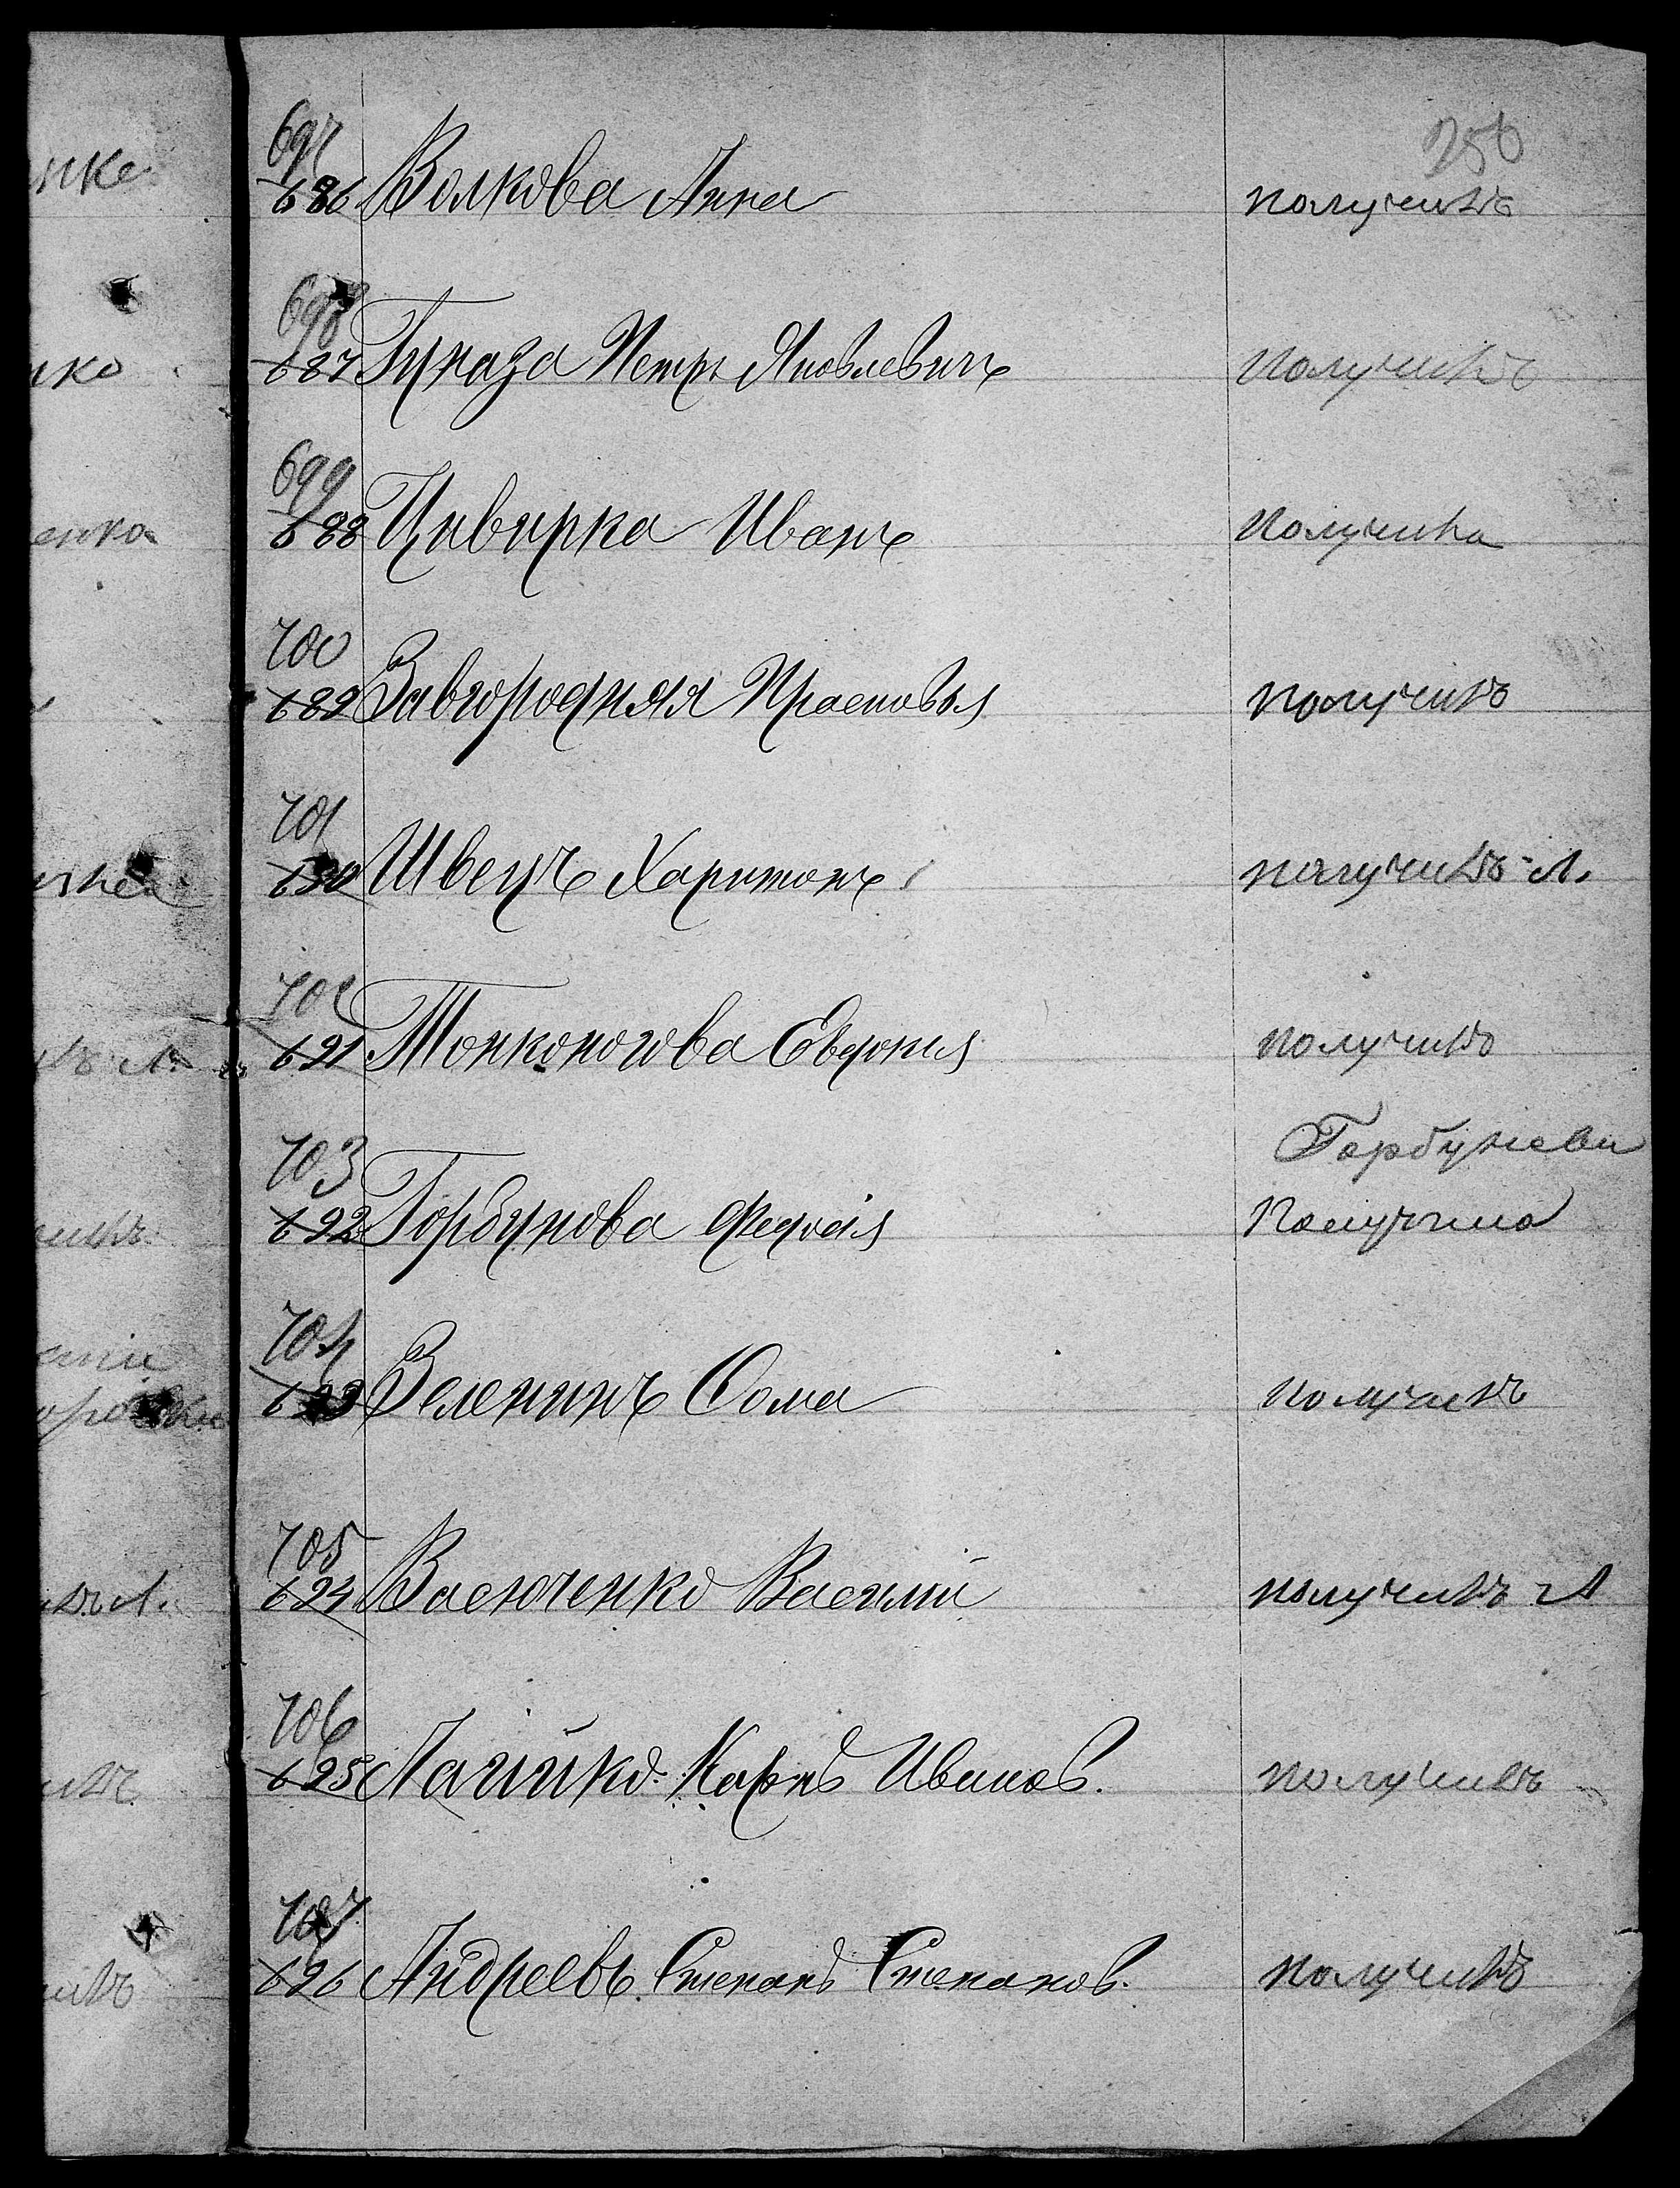 256
697
686 Волкова Анна получилъ
698
687 Гуназа Петръ Яковлевичъ получилъ
699
688 Цивирка Иванъ получила
700
689 Завгородняя Прасковья получилъ
701
690 Швецъ Харитонъ получилъ Л.
702
691 Тонконогова Евдокия получилъ
703 Горбунова
692 Горбунова Федосія Получила
704
693 Зеленинъ Фома получилъ
705
694 Васюченко Василий получилъ Л
706
695 Карпъ Иванов. получилъ
707
696 Андреевъ Степанъ Степанов. получилъ